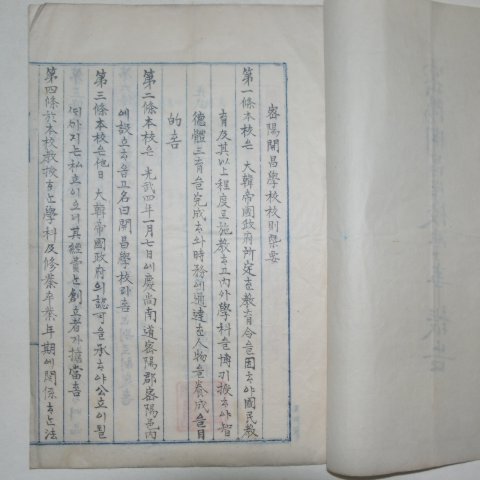 密陽開昌學校校則槩要
第一條本校은 大韓帝國政府所定한教育令을因하야國民教
育及其以上程度로施教하고内外學科을博引教授하야智
德體三育을完成하와時務에通達한人物을養成을目
的홈
第二條本校은 光武四年一月七日에慶尚南道密陽郡密陽邑内
에設立하옴고名曰開昌學校라홈
第三條本校은他日 大韓帝國政府의認可을承하야公立이될
까지는私立이요其經費은創立者가擔當홈
第四條於本校教授하는學科及修業卒業年期에關係하는法